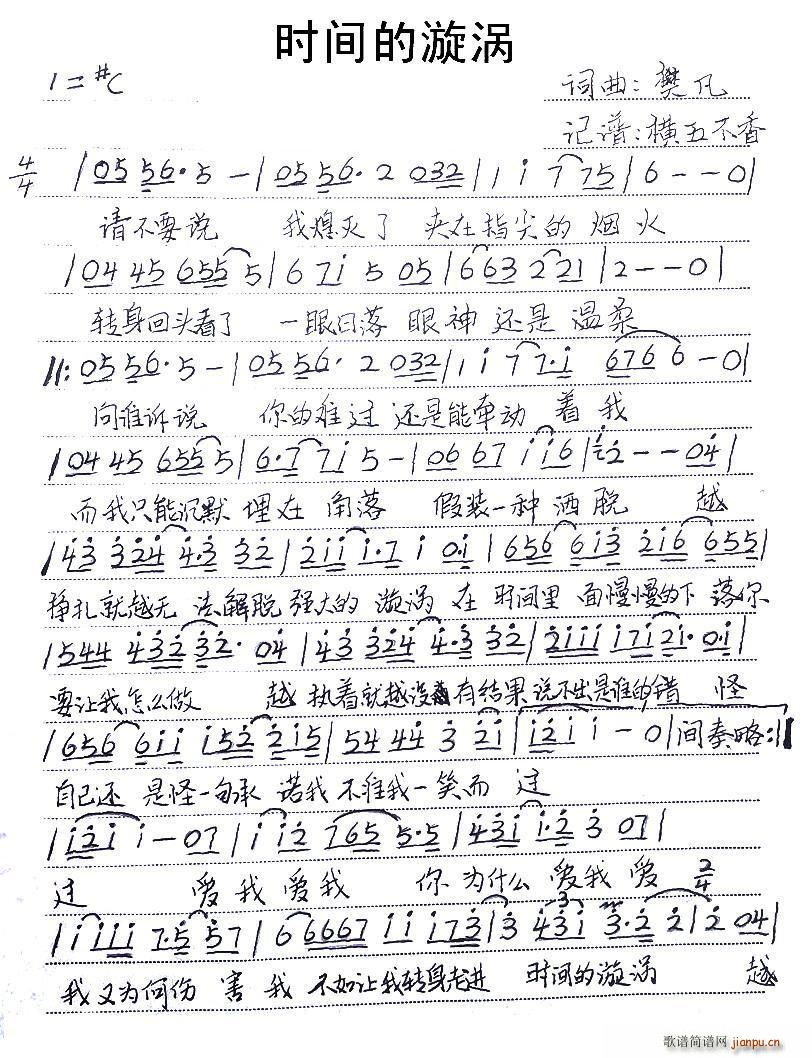 时间的漩涡
1=#C
词曲:樊凡
记谱:横五不香
4/4 |05 56·5 -|05 56· 2 032|1 i 7 775|6 - - 0|
请不要说 我熄灭了 夹在指尖的 烟火
|04 45 655 5|6 7i 5 05|663 2 21|2 - - 0|
转身回头看了 一眼日落 眼神 还是 温柔
||:05 56·5 -|05 56· 2 032|1 i 7 7·i 6766 - 0|
问谁诉说 你的难过 还是能牵动 着我
|04 45 655 5|6·7 7i 5 -|06 67 i i6|2 - - 04|
而我只能沉默 埋在 角落 假装一种 洒脱 越
|43 324 4·3 32|2ii i·7 i 0·i|656 6i3 2i6 655|
挣扎就越无 法解脱 强大的 漩涡 在 时间里 面慢慢的下 落你
|544 432 32· 04|43 324 4·3 32|2iii i7i 2i· 0i|
要让我怎么做 越 执着就越没有结果 说不出是谁的错 怪
|656 6ii i52 2i5|54 44 3 2i|i2i i - 0|间奏略:||
自己还 是怪一句承 诺我 不准我一笑而 过
|i2i i - 07|i i2 765 5·5|43i i·2 3 07|
过 爱我爱我 你为什么 爱我 爱 2/4
|i i iii 7·5 57|6 6667 ii i73|3 43i 3·2 2|2 04|
我又为何伤 害 我 不如让我转身走进 时间的漩涡 越
歌谱简谱网
jianpu.cn